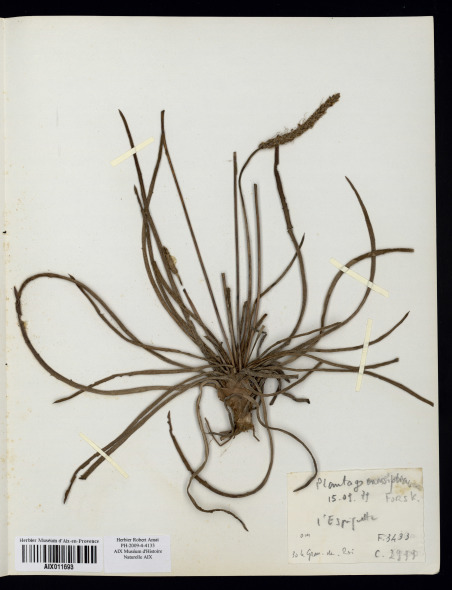 Plantago crassifolia
15.09.79 FORSK.
l'Espiguette
0 m F.3433
C. 2999
Herbier Muséum d'Aix-en-Provence
AIX011693
Herbier Robert Amat
PH-2009-0-4133
AIX Muséum d'Histoire
Naturelle AIX